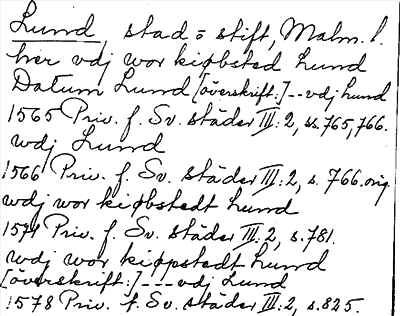 Lund, stad o stift, Malm. l.
her vdj wor kiøbsted Lund
Datum Lund [överskrift:] -- vdj lund
1565 Priv. f. Sv. städer III:2, ss. 765, 766.
wdj Lund
1566 Priv. f. Sv. städer III:2, s. 766. orig
wdj wor kiøbstedt Lund
1571 Priv. f. Sv. städer III:2, s. 781.
wdj wor kiøpstedt Lund
[överskrift:] --- vdj Lund
1578 Priv. f. Sv. städer III:2, s. 825.